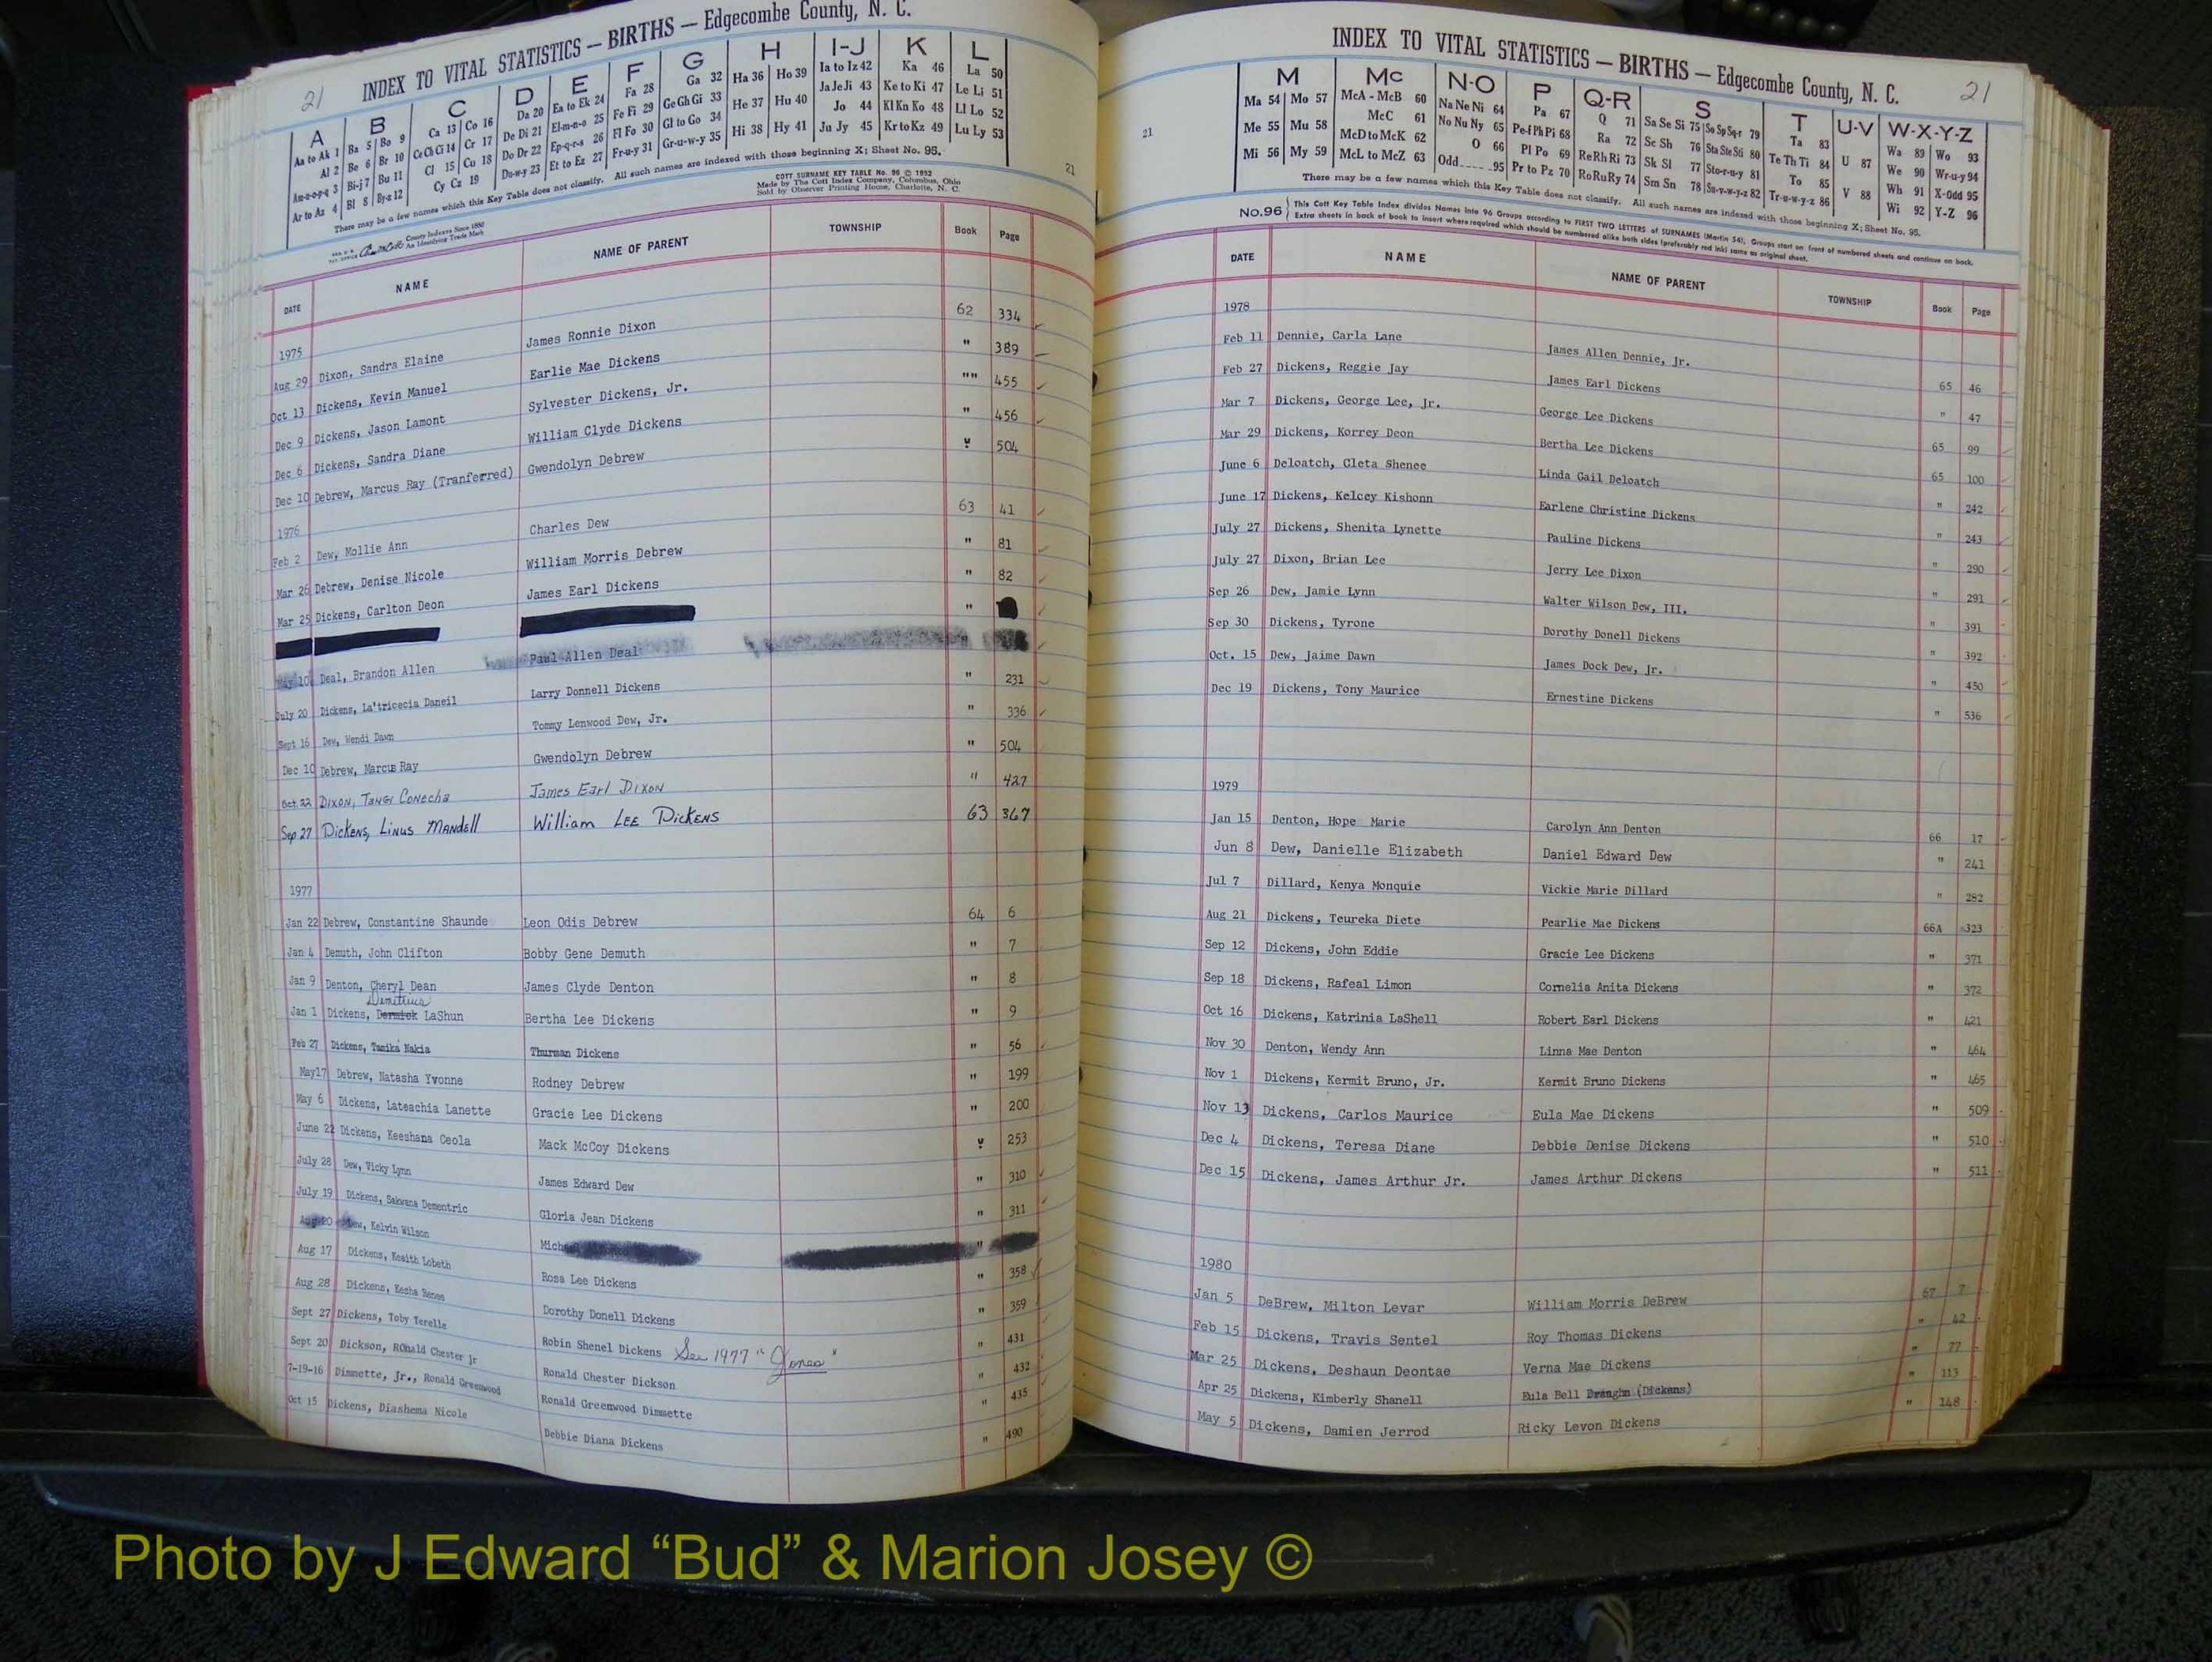 21
INDEX TO VITAL STATISTICS — BIRTHS — Edgecombe County, N. C.
A B C D E F G H I-J K L
Aa to Ak 1 Ba 5 Bo 9 Ca 13 Co 16 Da 20 Ea to Ek 24 Fa 28 Ga 32 Ha 36 Ho 39 Ia to Iz 42 Ka 46 La 50
Al 2 Be 6 Br 10 Ce Ch Ci 14 Cr 17 De Di 21 El-m-n-o 25 Fe Fi 29 Ge Gh Gi 33 He 37 Hu 40 Ja Je Ji 43 Ke to Ki 47 Le Li 51
Am-n-o-p-q 3 Bi-j 7 Bu 11 Cl 15 Cu 18 Do Dr 22 Ep-q-r-s 26 Fl Fo 30 Gl to Go 34 Hi 38 Hy 41 Jo 44 Kl Kn Ko 48 Ll Lo 52
Ar to Az 4 Bl 8 By-z 12 Cy Cz 19 Du-w-y 23 Et to Ez 27 Fr-u-y 31 Gr-u-w-y 35 Ju Jy 45 Kr to Kz 49 Lu Ly 53
There may be a few names which this Key Table does not classify. All such names are indexed with those beginning X; Sheet No. 95.
COTT SURNAME KEY TABLE No. 96 © 1952
Made by The Cott Index Company, Columbus, Ohio
Sold by Observer Printing House, Charlotte, N. C.
County Indexes Since 1880
An Identifying Trade Mark
21
DATE NAME NAME OF PARENT TOWNSHIP Book Page
1975
Aug 29 Dixon, Sandra Elaine James Ronnie Dixon 62 334
Oct 13 Dickens, Kevin Manuel Earlie Mae Dickens " 389
Dec 9 Dickens, Jason Lamont Sylvester Dickens, Jr. "" 455
Dec 6 Dickens, Sandra Diane William Clyde Dickens " 456
Dec 10 Debrew, Marcus Ray (Tranferred) Gwendolyn Debrew " 504
1976
Feb 2 Dew, Mollie Ann Charles Dew 63 41
Mar 26 Debrew, Denise Nicole William Morris Debrew " 81
Mar 25 Dickens, Carlton Deon James Earl Dickens " 82
"
May 10 Deal, Brandon Allen Paul Allen Deal "
July 20 Dickens, La'tricecia Daneil Larry Donnell Dickens " 231
Sept 16 Dew, Wendi Dawn Tommy Lenwood Dew, Jr. " 336
Dec 10 Debrew, Marcus Ray Gwendolyn Debrew " 504
Oct. 22 Dixon, Tangi Conecha James Earl Dixon " 427
Sep 27 Dickens, Linus Mandell William Lee Dickens 63 367
1977
Jan 22 Debrew, Constantine Shaunde Leon Odis Debrew 64 6
Jan 4 Demuth, John Clifton Bobby Gene Demuth " 7
Jan 9 Denton, Cheryl Dean James Clyde Denton " 8
Demetrius
Jan 1 Dickens, Dermick LaShun Bertha Lee Dickens " 9
Feb 27 Dickens, Tamika Nakia Thurman Dickens " 56
May17 Debrew, Natasha Yvonne Rodney Debrew " 199
May 6 Dickens, Lateachia Lanette Gracie Lee Dickens " 200
June 22 Dickens, Keeshana Ceola Mack McCoy Dickens " 253
July 28 Dew, Vicky Lynn James Edward Dew " 310
July 19 Dickens, Sakwana Dementric Gloria Jean Dickens " 311
Aug 20 Dew, Kelvin Wilson Mich "
Aug 17 Dickens, Keaith Lobeth Rosa Lee Dickens " 358
Aug 28 Dickens, Kesha Renee Dorothy Donell Dickens " 359
Sept 27 Dickens, Toby Terelle Robin Shenel Dickens See 1977 "Jones" " 431
Sept 20 Dickson, ROnald Chester jr Ronald Chester Dickson " 432
7-19-16 Dimmette, Jr., Ronald Greenwood Ronald Greenwood Dimmette " 435
Oct 15 Dickens, Diashema Nicole Debbie Diana Dickens " 490
INDEX TO VITAL STATISTICS — BIRTHS — Edgecombe County, N. C.
21
21
M Mc N-O P Q-R S T U-V W-X-Y-Z
Ma 54 Mo 57 McA - McB 60 Na Ne Ni 64 Pa 67 Q 71 Sa Se Si 75 So Sp Sq-r 79 Ta 83 U 87 Wa 89 Wo 93
Me 55 Mu 58 McC 61 No Nu Ny 65 Pe-f Ph Pi 68 Ra 72 Sc Sh 76 Sta Ste Sti 80 Te Th Ti 84 V 88 We 90 Wr-u-y 94
Mi 56 My 59 McD to McK 62 O 66 Pl Po 69 Re Rh Ri 73 Sk Sl 77 Sto-r-u-y 81 To 85 Wh 91 X-Odd 95
McL to McZ 63 Odd 95 Pr to Pz 70 Ro Ru Ry 74 Sm Sn 78 Su-v-w-y-z 82 Tr-u-w-y-z 86 Wi 92 Y-Z 96
There may be a few names which this Key Table does not classify. All such names are indexed with those beginning X; Sheet No. 95.
No.96 This Cott Key Table Index divides Names into 96 Groups according to FIRST TWO LETTERS of SURNAMES (Martin 54). Groups start on front of numbered sheets and continue on back.
Extra sheets in back of book to insert where required which should be numbered alike both sides (preferably red ink) same as original sheet.
DATE NAME NAME OF PARENT TOWNSHIP Book Page
1978
Feb 11 Dennie, Carla Lane James Allen Dennie, Jr. 65 46
Feb 27 Dickens, Reggie Jay James Earl Dickens " 47
Mar 7 Dickens, George Lee, Jr. George Lee Dickens 65 99
Mar 29 Dickens, Korrey Deon Bertha Lee Dickens 65 100
June 6 Deloatch, Cleta Shenee Linda Gail Deloatch " 242
June 17 Dickens, Kelcey Kishonn Earlene Christine Dickens " 243
July 27 Dickens, Shenita Lynette Pauline Dickens " 290
July 27 Dixon, Brian Lee Jerry Lee Dixon " 291
Sep 26 Dew, Jamie Lynn Walter Wilson Dew, III. " 391
Sep 30 Dickens, Tyrone Dorothy Donell Dickens " 392
Oct. 15 Dew, Jaime Dawn James Dock Dew, Jr. " 450
Dec 19 Dickens, Tony Maurice Ernestine Dickens " 536
1979
Jan 15 Denton, Hope Marie Carolyn Ann Denton 66 17
Jun 8 Dew, Danielle Elizabeth Daniel Edward Dew " 241
Jul 7 Dillard, Kenya Monquie Vickie Marie Dillard " 282
Aug 21 Dickens, Teureka Diete Pearlie Mae Dickens 66A 323
Sep 12 Dickens, John Eddie Gracie Lee Dickens " 371
Sep 18 Dickens, Rafeal Limon Cornelia Anita Dickens " 372
Oct 16 Dickens, Katrinia LaShell Robert Earl Dickens " 421
Nov 30 Denton, Wendy Ann Linna Mae Denton " 464
Nov 1 Dickens, Kermit Bruno, Jr. Kermit Bruno Dickens " 465
Nov 13 Dickens, Carlos Maurice Eula Mae Dickens " 509
Dec 4 Dickens, Teresa Diane Debbie Denise Dickens " 510
Dec 15 Dickens, James Arthur Jr. James Arthur Dickens " 511
1980
Jan 5 DeBrew, Milton Levar William Morris DeBrew 67 7
Feb 15 Dickens, Travis Sentel Roy Thomas Dickens " 42
Mar 25 Dickens, Deshaun Deontae Verna Mae Dickens " 77
Apr 25 Dickens, Kimberly Shanell Eula Bell Draughn (Dickens) " 113
May 5 Dickens, Damien Jerrod Ricky Levon Dickens " 148
Photo by J Edward “Bud” & Marion Josey ©